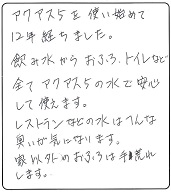 アクアス5を使い始めて
12年経ちました。
飲み水からおふろ、トイレなど
全てアクアス5の水で安心
して使えます。
レストランなどの水はへんな
臭いが気になります。
家以外のおふろは手が荒れ
します。